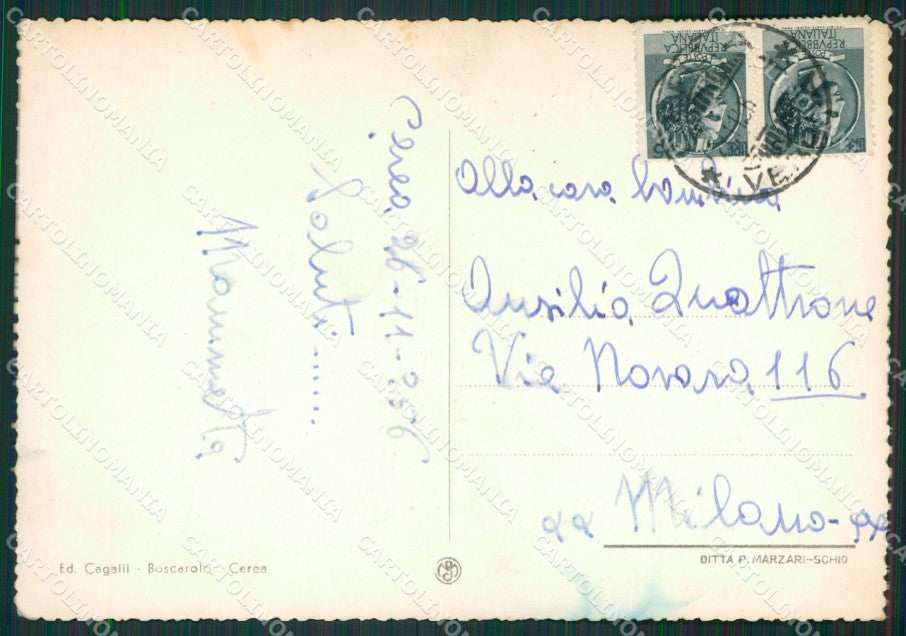 Cerea 26-11-956
Saluti......
Mammetta
REPVBBLICA
ITALIANA
LIRE
REPVBBLICA
ITALIANA
LIRE
Alla cara bambina
Ausilia Quattrone
Via Novara 116
Milano
Ed. Cagalli - Boscarolo - Cerea
DITTA P. MARZARI-SCHIO
CARTOLINOMANIA